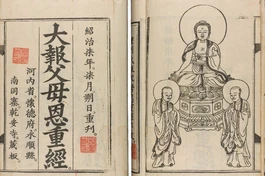 紹治柒年柒月朔日重刊
大報父母恩重經
河內省懷德府永順縣
南同寨乾安寺藏板